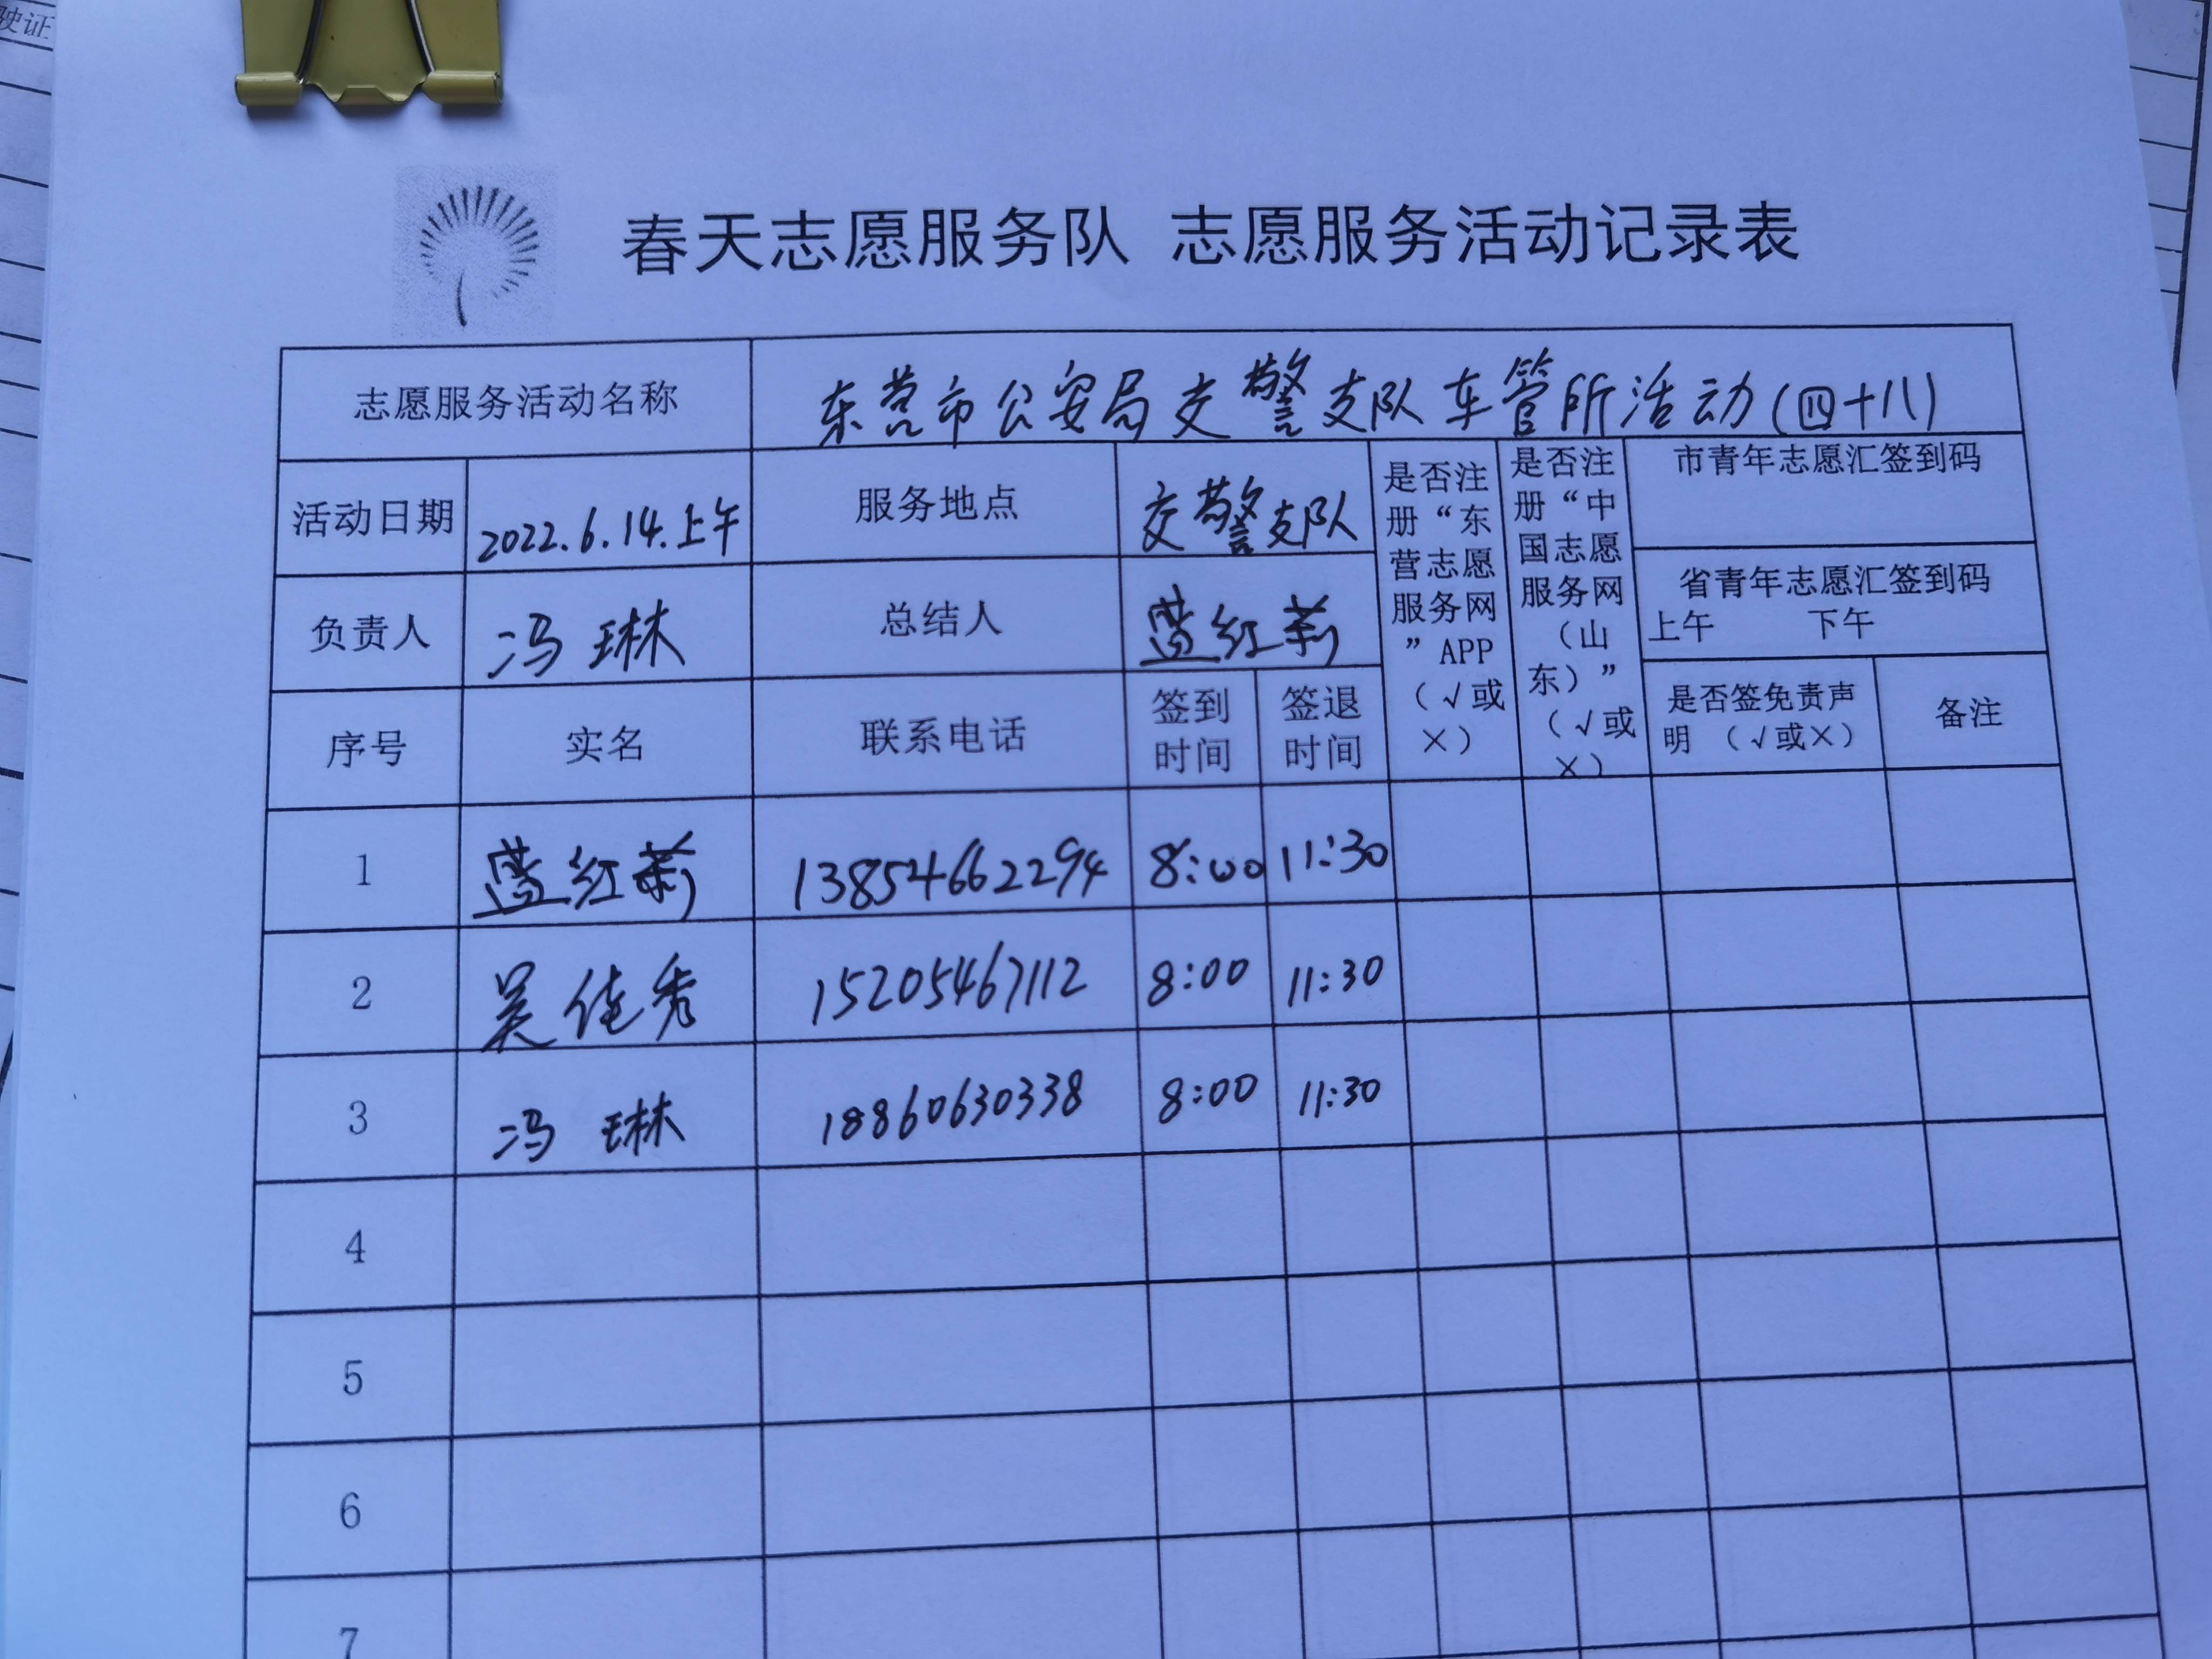 驶证
春天志愿服务队 志愿服务活动记录表
志愿服务活动名称 东营市公安局交警支队车管所活动(四十八)
活动日期 2022.6.14.上午 服务地点 交警支队
是否注册“东营志愿服务网”APP(√或×)
是否注册“中国志愿服务网(山东)”(√或×)
市青年志愿汇签到码
省青年志愿汇签到码
上午 下午
负责人 冯琳 总结人 蓝红莉
序号 实名 联系电话 签到时间 签退时间 是否签免责声明 (√或×) 备注
1 蓝红莉 13854662294 8:00 11:30
2 吴佳秀 15205467112 8:00 11:30
3 冯琳 18860630338 8:00 11:30
4
5
6
7